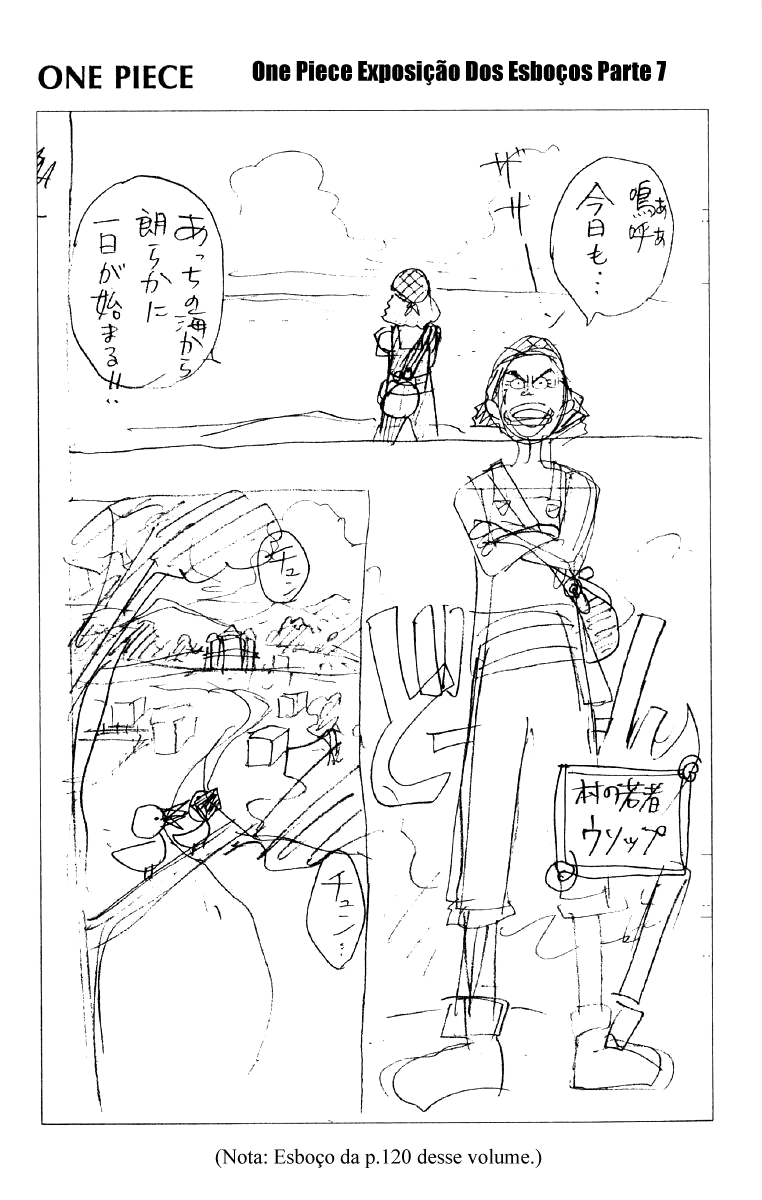 ONE PIECE
One Piece Exposição Dos Esboços Parte 7
嗚呼
ああ
今日も…
ザザ
ン
あっちの海から
朗らかに
一日が始まる!!
チュン
チュン…
村の若者
ウソップ
(Nota: Esboço da p.120 desse volume.)